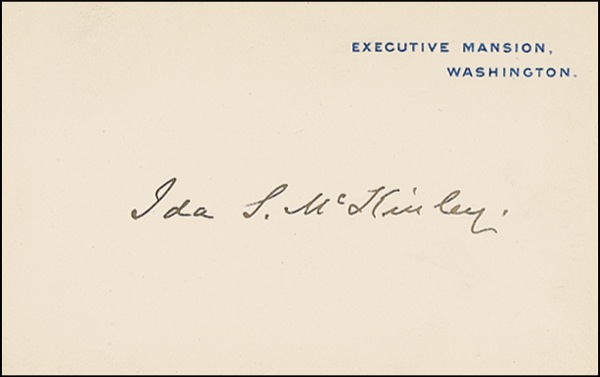 EXECUTIVE MANSION,
WASHINGTON.
Ida S. McKinley.